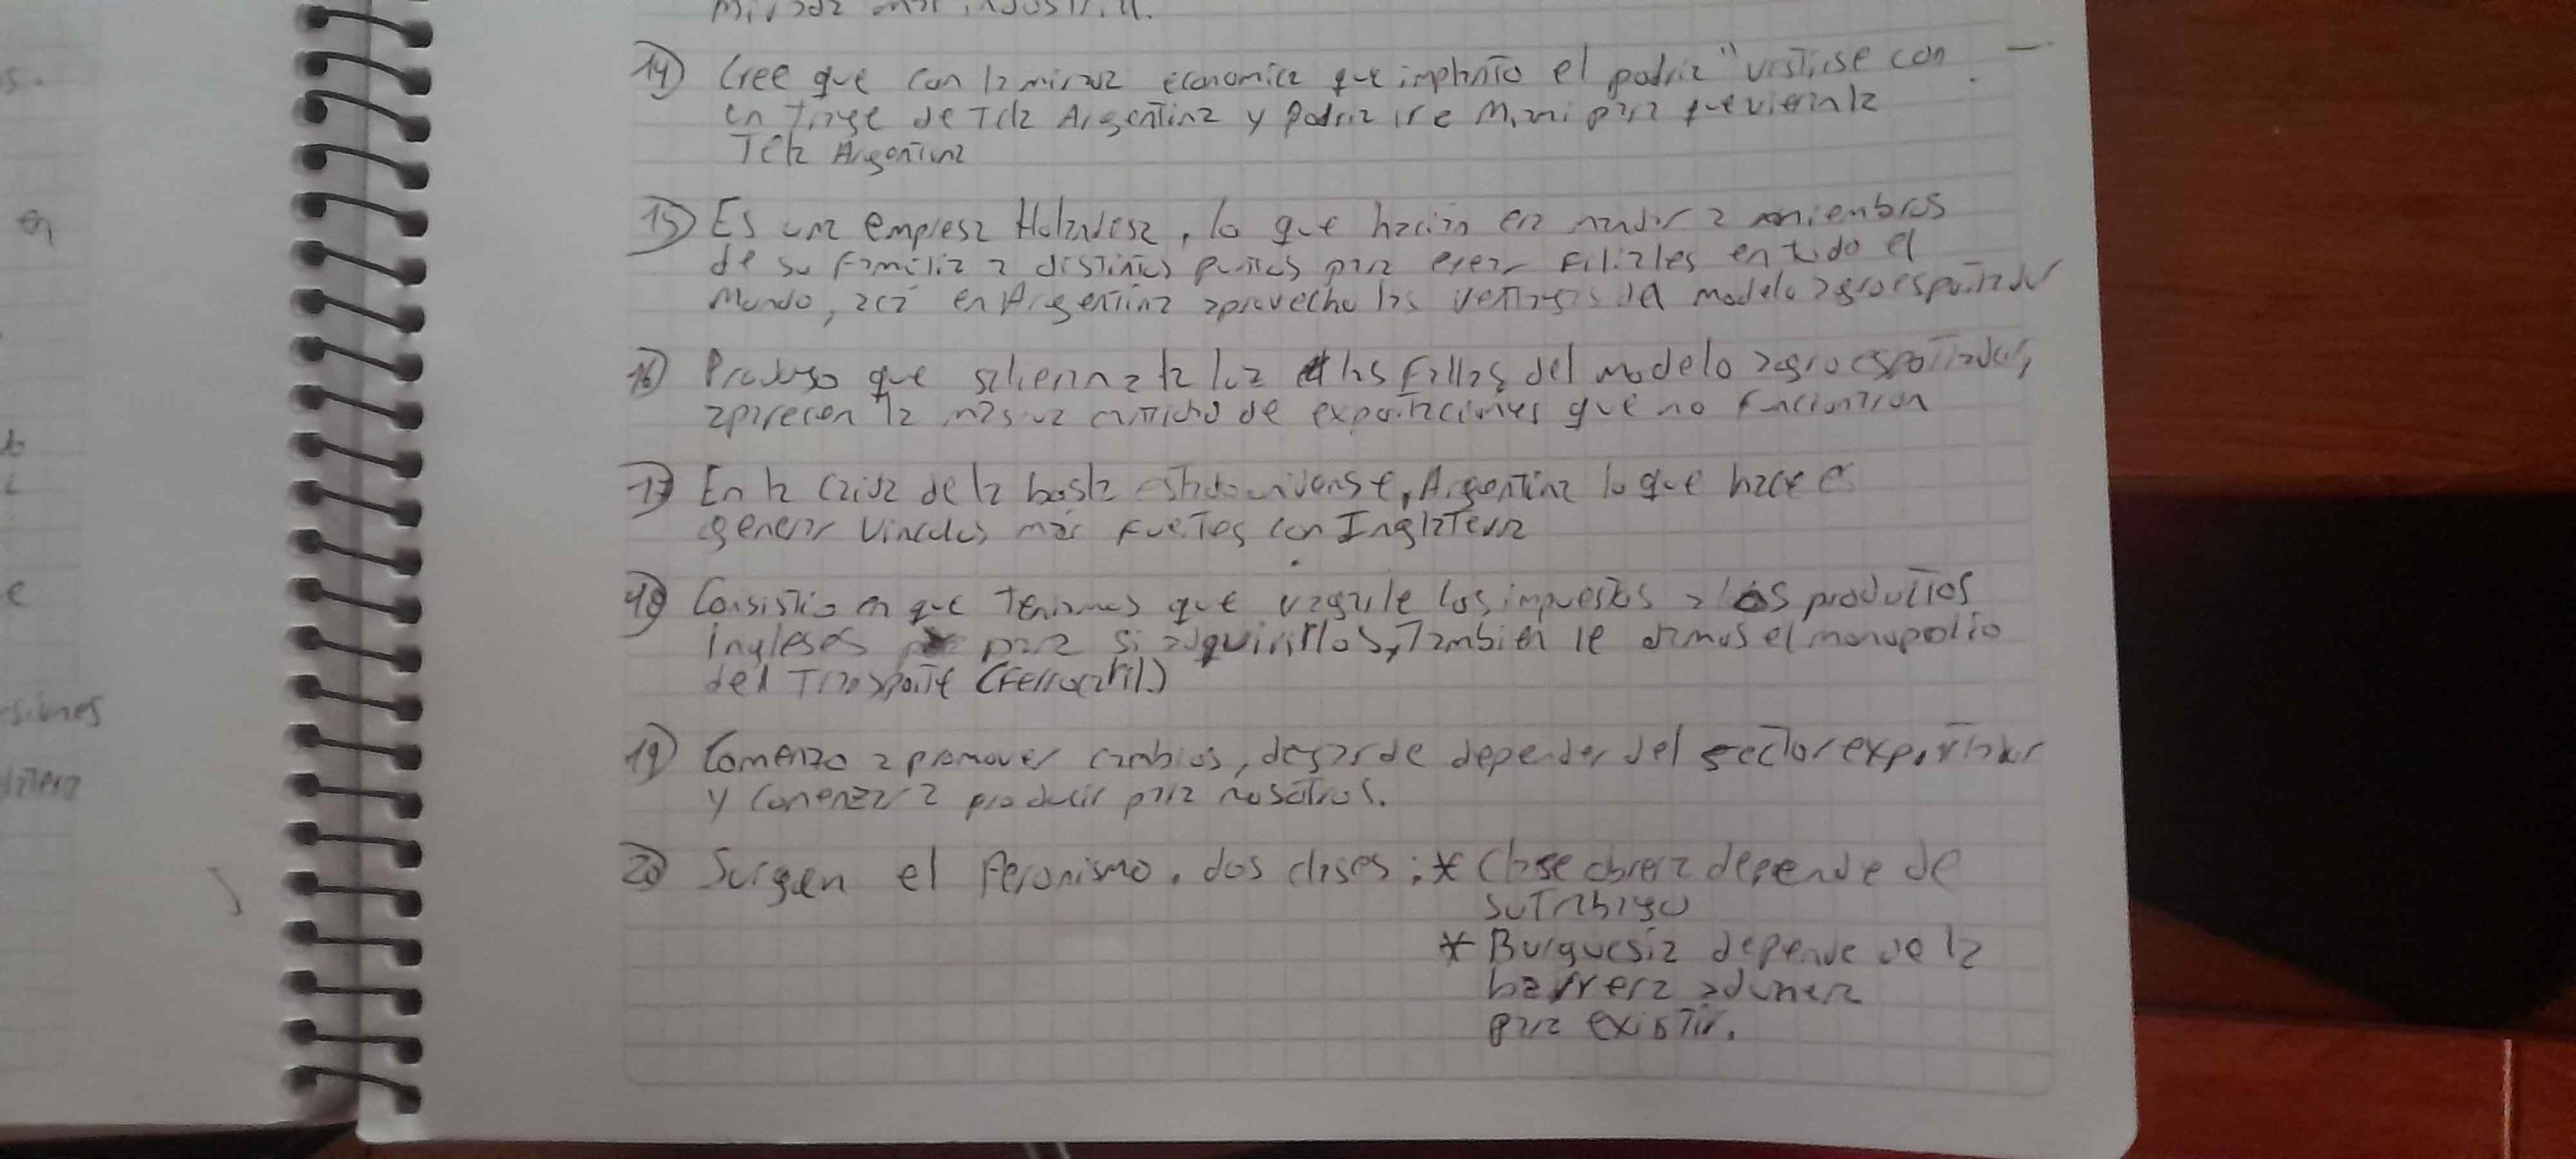 mirada mas industrial.
14) Cree que con la mirada economica que implanto el podria "vestirse con
un traje de Tela Argentina y Podria ir a Miami para que vieran la
Tela Argentina
15) Es una empresa Holandesa, lo que hacian era mandar a miembros
de su familia a distintos puntos para crear filiales en todo el
Mundo, acá en Argentina aprovecho las ventajas del modelo agroesportador
16) Produjo que salieran a la luz las fallas del modelo agroesportador,
aparecen la masiva cantidad de exportaciones que no funcionaron
17) En la Caida de la bolsa estadounidense, Argentina lo que hace es
generar vinculos más fuertes con Inglaterra
18) Consistio en que teniamos que los impuestos a los productos
Ingleses para si adquirirlos, Tambien le damos el monopolio
del Transporte (Ferrocaril.)
19) Comenzo a promover cambios, dejar de depender del sector exportador
y comenzar a producir para nosotros.
20) Surgen el Peronismo. dos clases: * Clase obrera depende de
su Trabajo
* Burguesia depende de la
barrera aduanera
para existir.
s.
en
e
siones